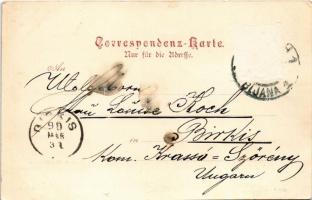 Correspondenz-Karte.
Nur für die Adresse.
An
Wolgeboren
Frau Louise Koch
in
Birkis
Kom. Krassó-Szörény
Ungarn